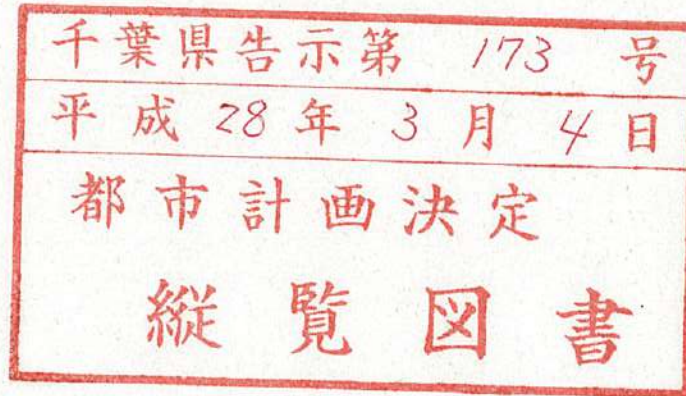 千葉県告示第 173 号
平成 28 年 3 月 4 日
都市計画決定
縦覧図書